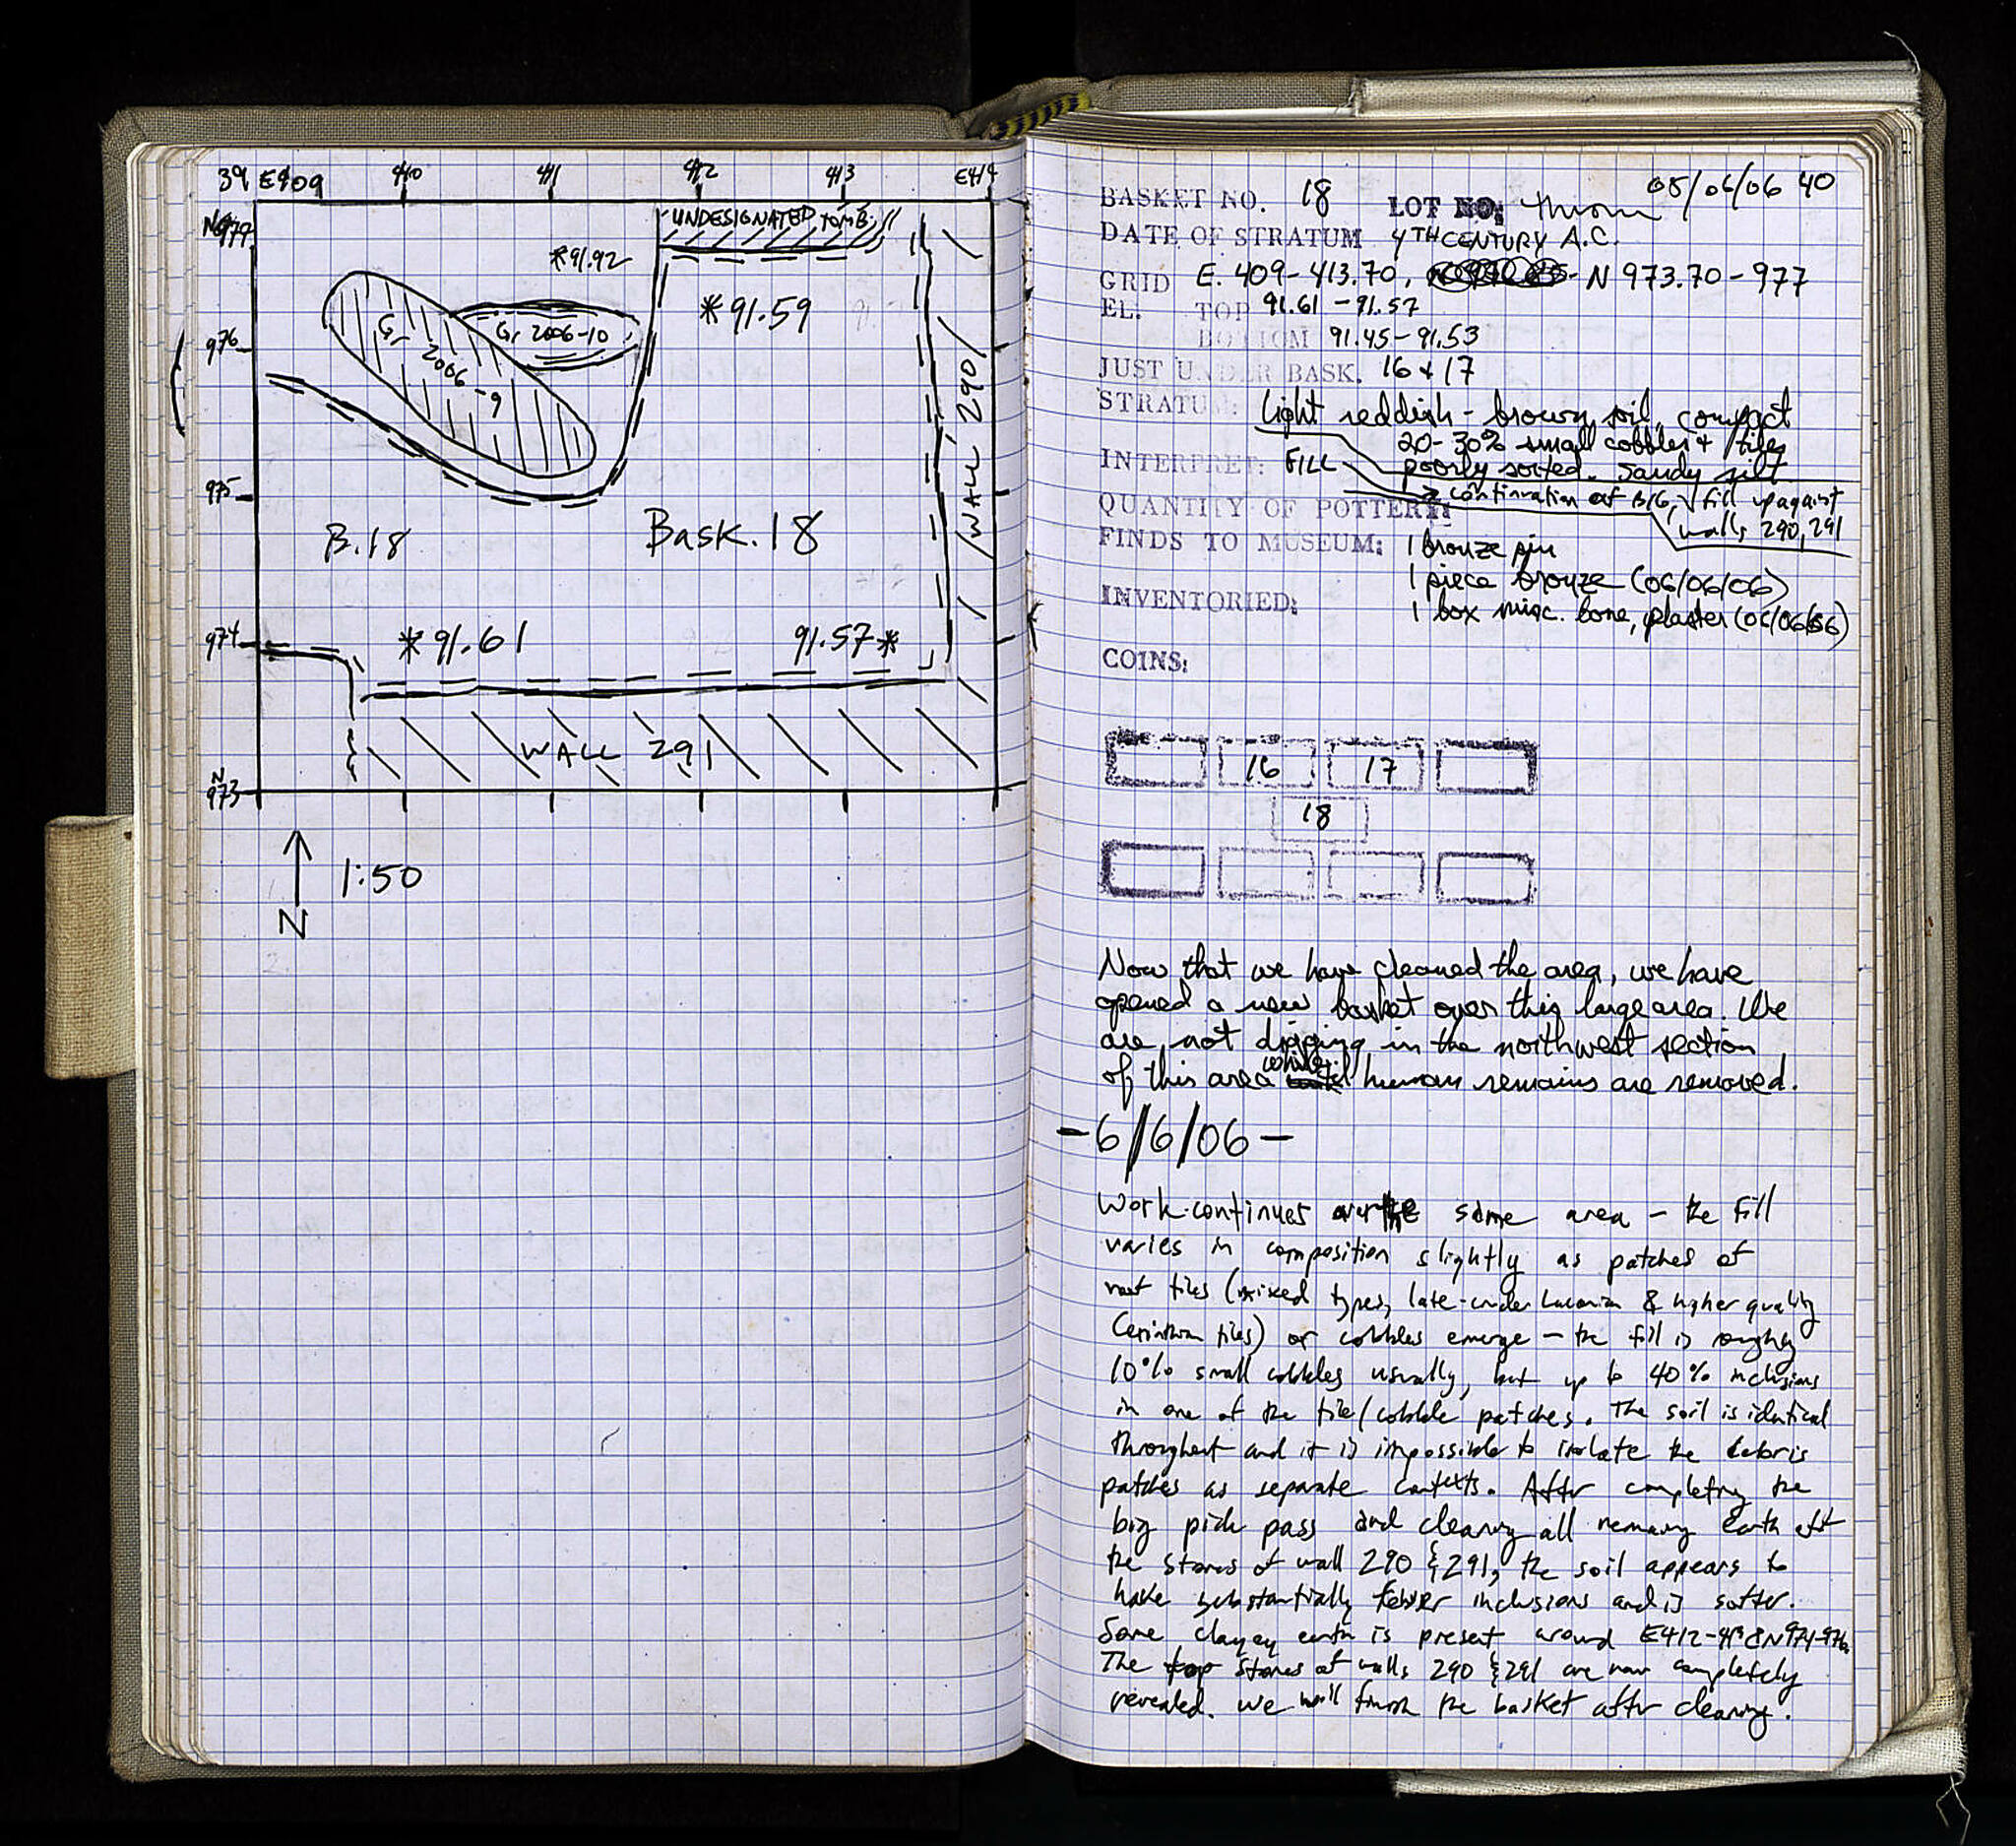 39 E409 410 411 412 413 E414
N977
UNDESIGNATED TOMB
*91.92
*91.59
976
Gr 2006-9
Gr 2006-10
WALL 290
975
B.18
Bask. 18
974
*91.61
91.57*
WALL 291
N
973
1:50
N
05/06/06 40
BASKET NO. 18 LOT NO: throw
DATE OF STRATUM 4TH CENTURY A.C.
GRID E. 409-413.70, N 973.70-977
EL. TOP 91.61-91.57
BOTTOM 91.45-91.53
JUST UNDER BASK. 16 + 17
STRATUM: light reddish-brown soil, compact
20-30% small cobbles + tiles
INTERPRET: FILL
poorly sorted. Sandy silt
→ continuation of B16, fill up against
walls 290, 291
QUANTITY OF POTTERY:
FINDS TO MUSEUM: 1 bronze pin
1 piece bronze (06/06/06)
INVENTORIED:
1 box misc. bone, plaster (06/06/06)
COINS:
16 17
18
Now that we have cleaned the area, we have
opened a new basket over this large area. We
are not digging in the northwest section
of this area while human remains are removed.
-6/6/06-
Work continues over the same area - the fill
varies in composition slightly as patches of
roof tiles (mixed types, late-under Laconian & higher quality
Corinthian tiles) or cobbles emerge - the fill is roughly
10% small cobbles usually, but up to 40% inclusions
in one of the tile/cobble patches. The soil is identical
throughout and it is impossible to isolate the debris
patches as separate contexts. After completing the
big pick pass and cleaning all remaining earth off
the stones of wall 290 & 291, the soil appears to
have substantially fewer inclusions and is softer.
Some clayey earth is present around E412-413 & N974-976.
The top stones of walls 290 & 291 are now completely
revealed. We will finish the basket after cleaning.